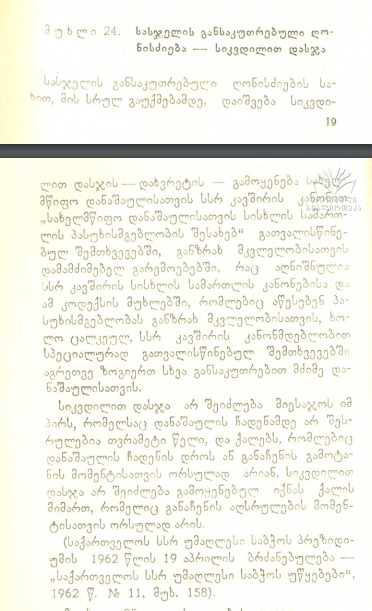 მუხლი 24. სასჯელის განსაკუთრებული ღო-
ნისძიება — სიკვდილით დასჯა
სასჯელის განსაკუთრებული ღონისძიების სა-
ხით, მის სრულ გაუქმებამდე, დაიშვება სიკვდი-
19
ლით დასჯის — დახვრეტის — გამოყენება
მწიფო დანაშაულისათვის სსრ კავშირის კანონით
„სახელმწიფო დანაშაულისათვის სისხლის სამართ-
ლის პასუხისმგებლობის შესახებ“ გათვალისწინე-
ბულ შემთხვევებში, განზრახ მკვლელობისათვის
დამამძიმებელ გარემოებებში, რაც აღნიშნულია
სსრ კავშირის სისხლის სამართლის კანონებისა და
ამ კოდექსის მუხლებში, რომლებიც აწესებენ პა-
სუხისმგებლობას განზრახ მკვლელობისათვის, ხო-
ლო ცალკეულ, სსრ კავშირის კანონმდებლობით
სპეციალურად გათვალისწინებულ შემთხვევებში
აგრეთვე ზოგიერთ სხვა განსაკუთრებით მძიმე და-
ნაშაულისათვის.
სიკვდილით დასჯა არ შეიძლება მიესაჯოს იმ
პირს, რომელსაც დანაშაულის ჩადენამდე არ შეს-
რულებია თვრამეტი წელი, და ქალებს, რომლებიც
დანაშაულის ჩადენის დროს ან განაჩენის გამოტა-
ნის მომენტისათვის ორსულად არიან. სიკვდილით
დასჯა არ შეიძლება გამოყენებულ იქნას ქალის
მიმართ, რომელიც განაჩენის აღსრულების მომენ-
ტისათვის ორსულად არის.
(საქართველოს სსრ უმაღლესი საბჭოს პრეზიდი-
უმის 1962 წლის 19 აპრილის ბრძანებულება —
„საქართველოს სსრ უმაღლესი საბჭოს უწყებები“,
1962 წ. № 11, მუხ. 158).